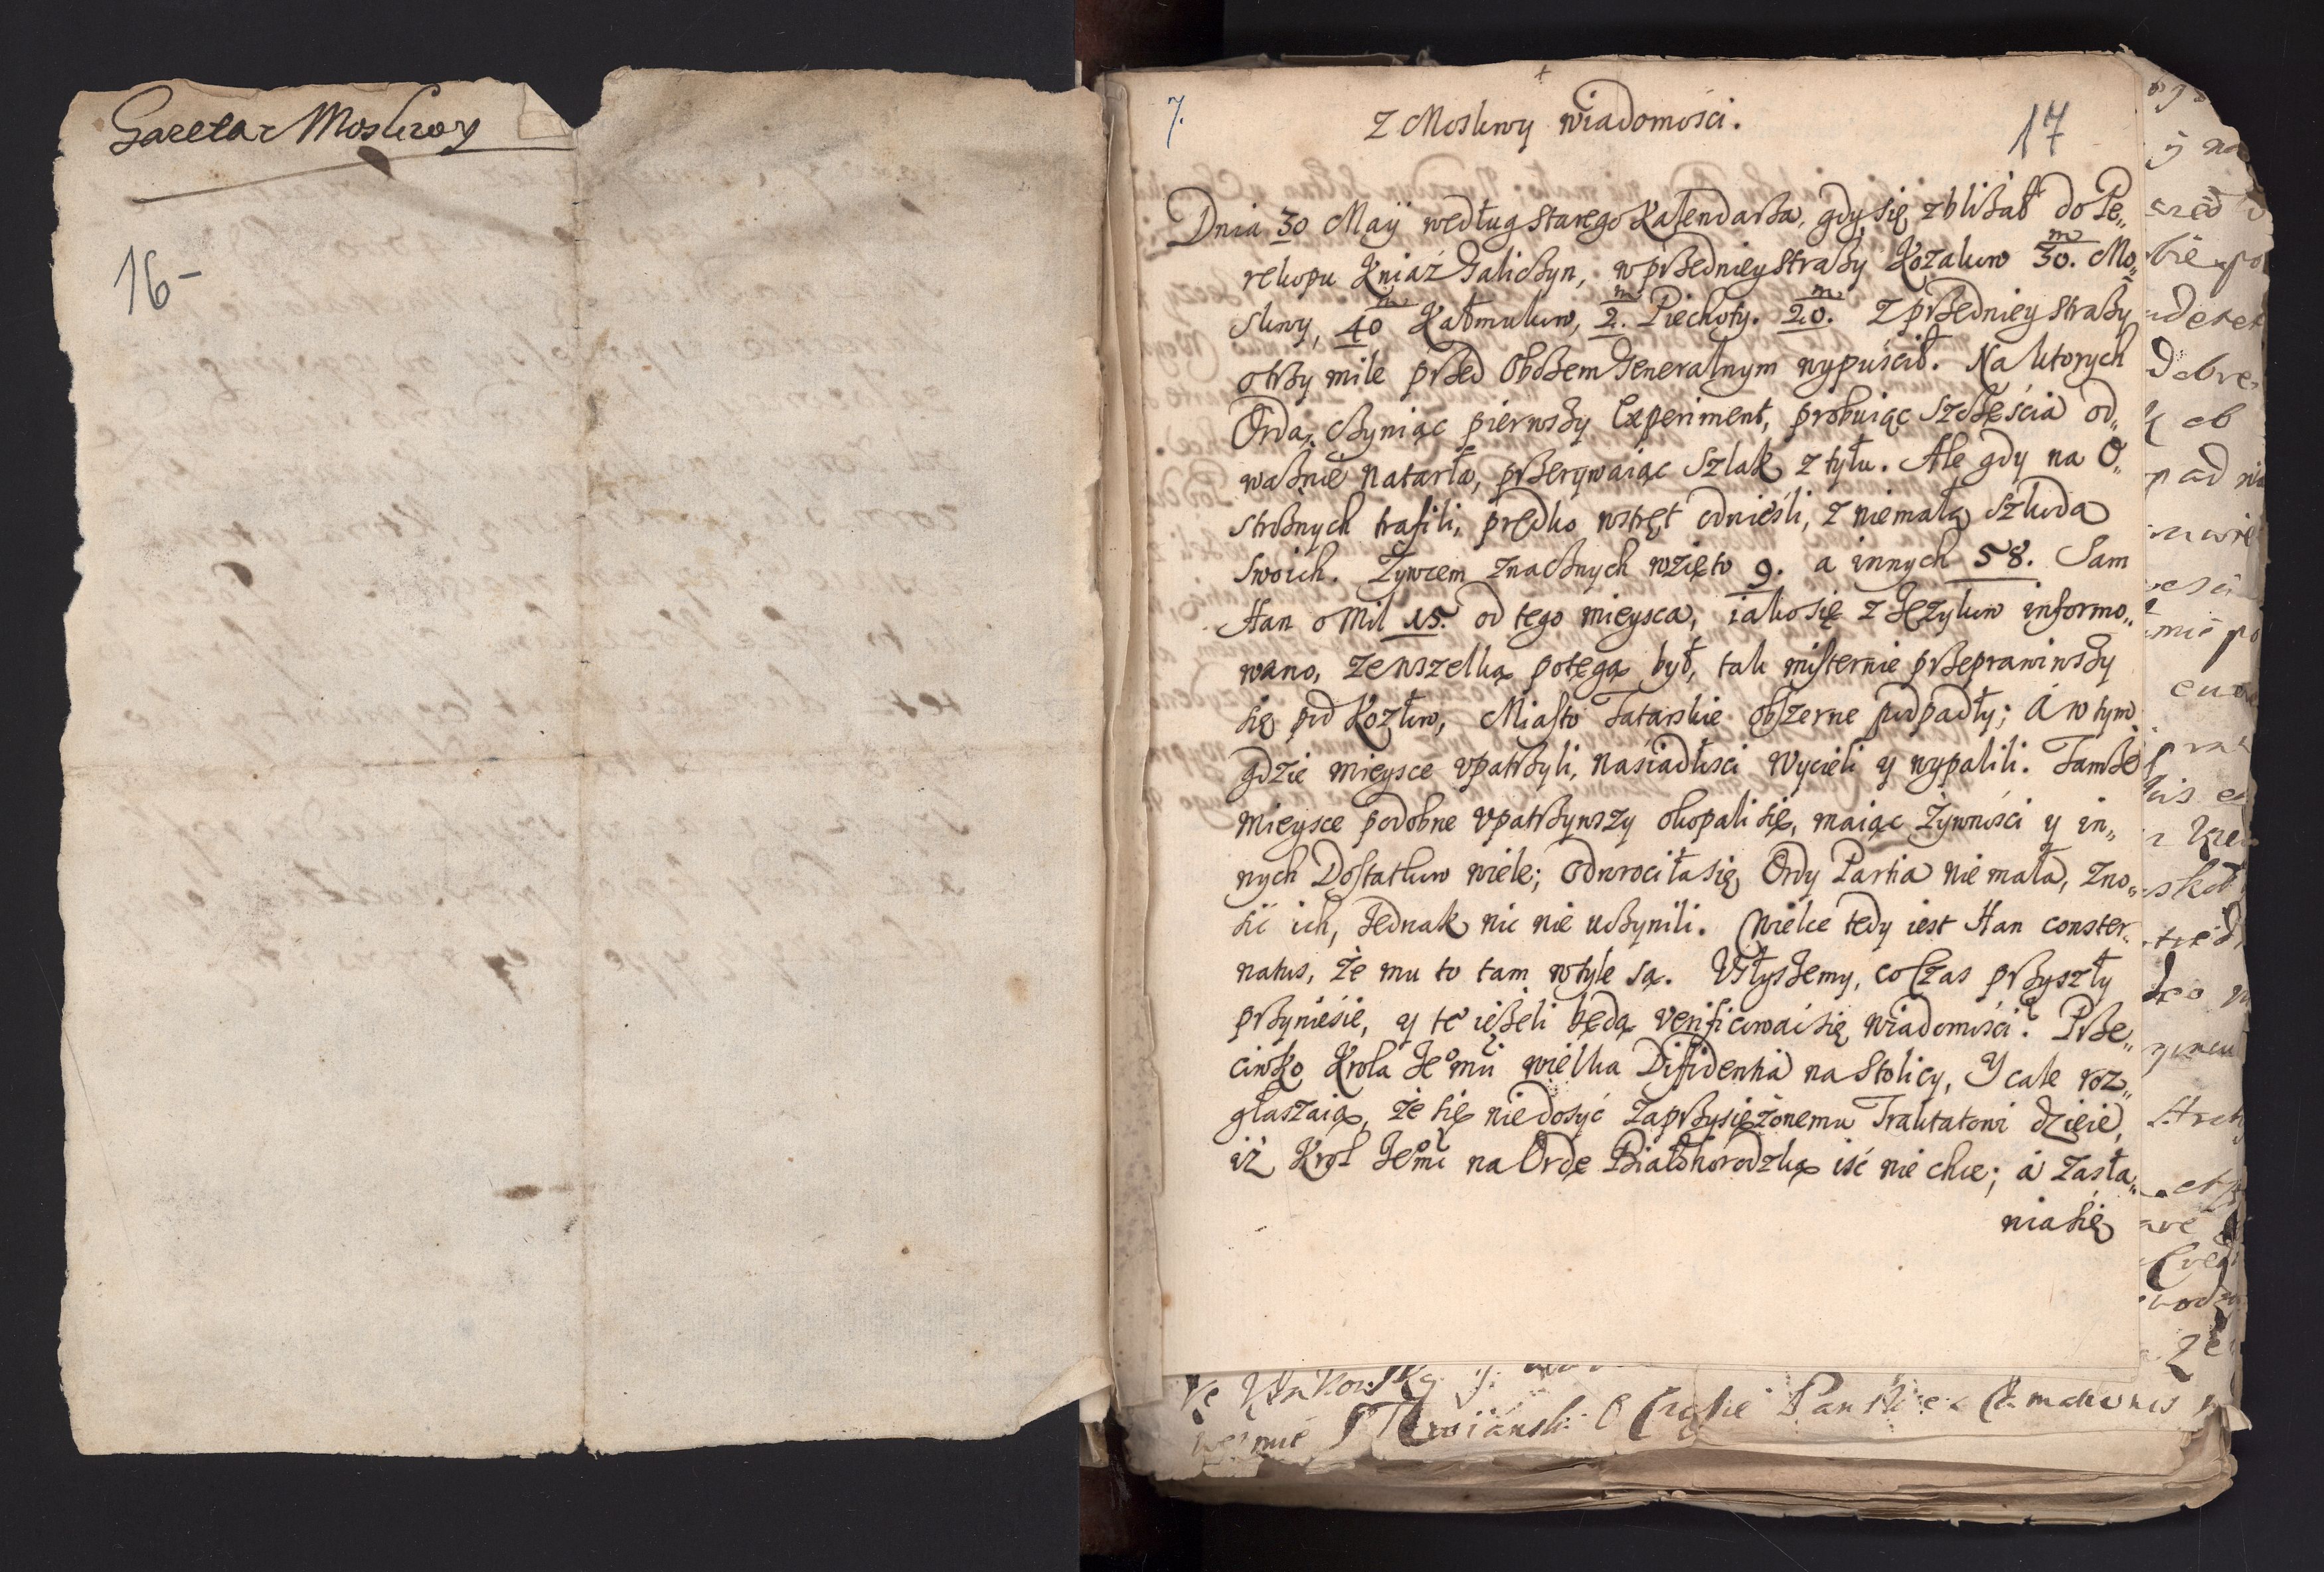 Gazeta z Moskwy
16-
7.
17
Z Moskwy wiadomości.
Dnia 30 Maij według starego Kalendarża, gdy się zbliżał do Pe„
rekopu Kniaź Galiczyn, w przedniey straży Kozakow 30.m Mo„
skwy, 40m Kałmukow, 2.m Piechoty. 20.m z przedniey straży
o trzy mile przed Obozem Generalnym wypuścił. Na ktorych
Orda, czyniąc pierwszy Experiment, probuiąc Szczęścia od„
ważnie natarła, przerywaiąc Szlak z tyłu. Ale gdy na O„
strożnych trafili, prędko wstręt odnieśli, z niemałą szkodą
swoich. Żywcem znacznych wzięto 9. a innych 58. Sam
Han o Mil 15. od tego mieysca, iako się z Językow informo„
wano, ze wszelką potęgą był, tak misternie przeprawiwszy
się pod Kozłow, Miasto Tatarskie obszerne podpadły; á w tym
gdzie mieysce upatrzyli, nasiadłości wycieli y wypalili. Tamże
mieysce podobne upatrzywszy okopali się, maiąc żywności y in„
nych Dostatkow wiele; odwrociła się Ordy Partia nie mała, zno„
sić ich, Jednak nic nie uczynili. Wielce tedy iest Han conster„
natus, że mu to tam w tyle są. Usłyszemy, co Czas przyszły
przyniesie, y te ieżeli będą verificować się wiadomości. Prze„
ciwko Krola Jeomci wielka Diffidentia na Stolicy, Y cale roz„
głaszaią, że się niedosyć zaprzysiężonemu Traktatowi dzieie,
iż Krol Jeomć na Ordę Białohorodzką iść nie chce; á zasła„
nia się